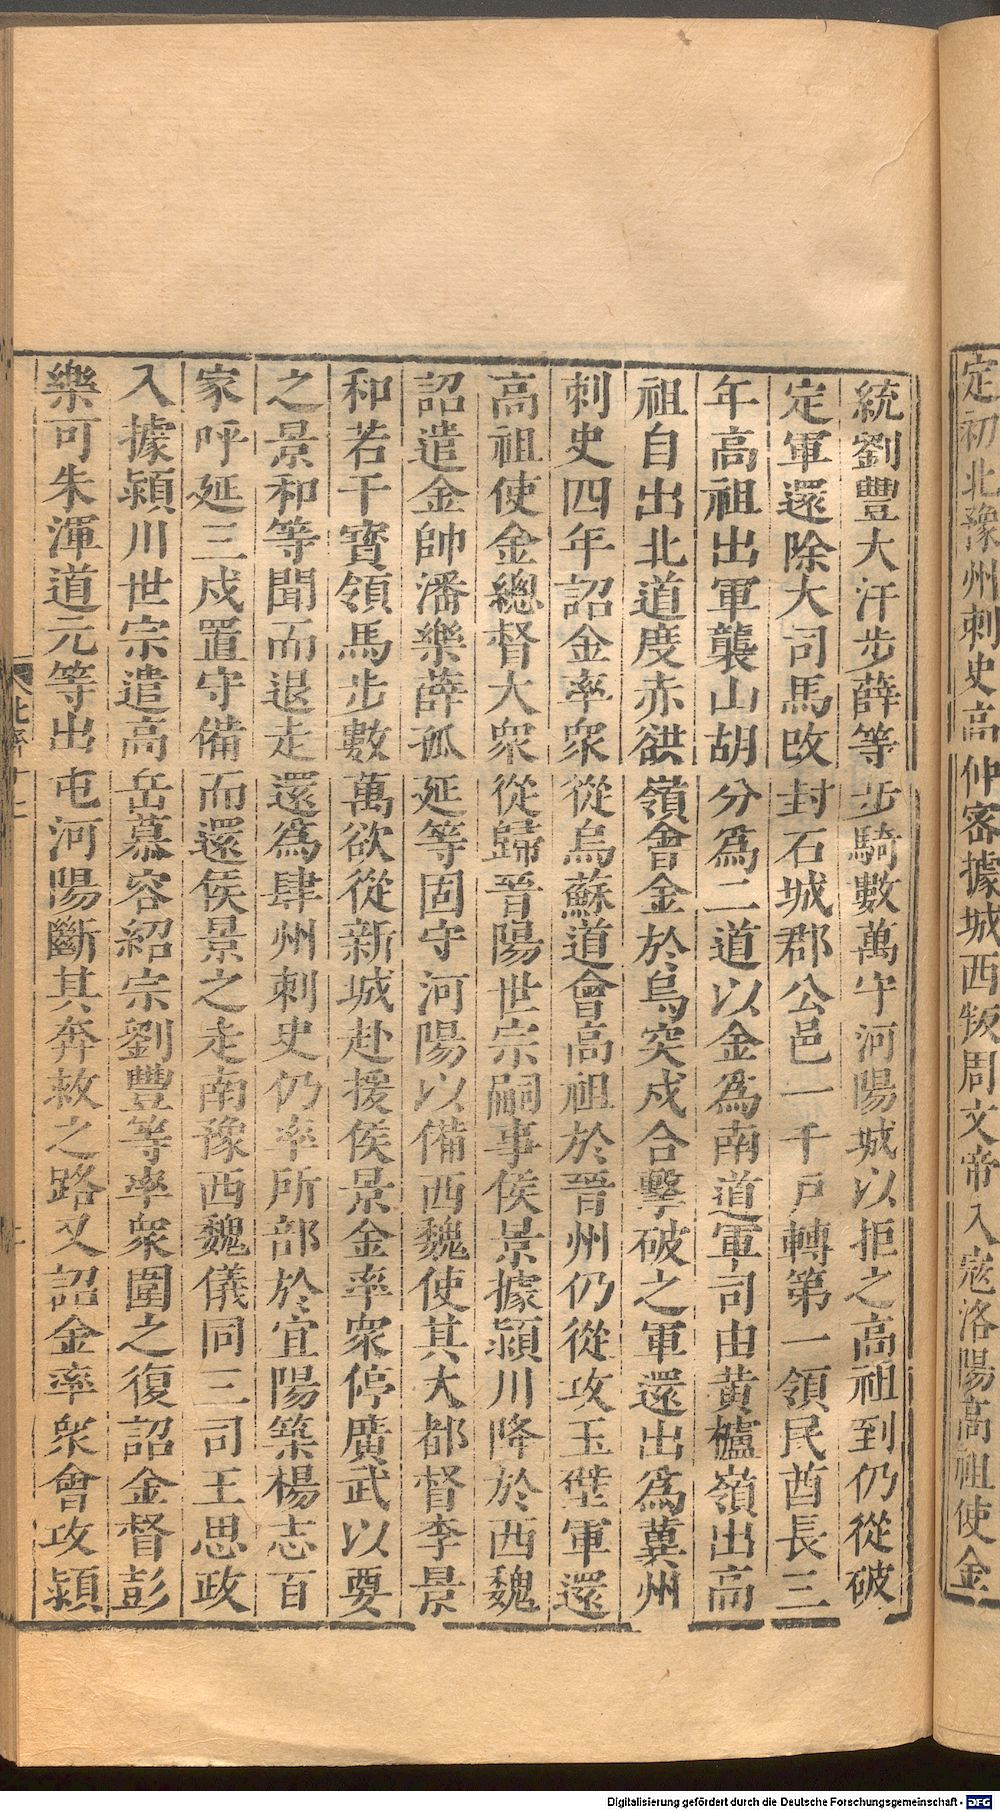 定初北豫州刺史高仲密據城西叛周文帝入寇洛陽高祖使金
統劉豐大汗步薛等步騎數萬守河陽城以拒之高祖到仍從破
定軍還除大司馬改封石城郡公邑一千戶轉第一領民酋長三
年高祖出軍襲山胡分為二道以金為南道軍司由黃櫨嶺出高
祖自出北道度赤谼嶺會金於烏突戍合擊破之軍還出為冀州
刺史四年詔金率眾從烏蘇道會高祖於晉州仍從攻玉壁軍還
高祖使金總督大眾從歸晉陽世宗嗣事侯景據潁川降於西魏
詔遣金帥潘樂薛孤延等固守河陽以備西魏使其大都督李景
和若干寶領馬步數萬欲從新城赴援侯景金率眾停廣武以要
之景和等聞而退走還為肆州刺史仍率所部於宜陽築楊志百
家呼延三戍置守備而還侯景之走南豫西魏儀同三司王思政
入據潁川世宗遣高岳慕容紹宗劉豐等率眾圍之復詔金督彭
樂可朱渾道元等出屯河陽斷其奔救之路又詔金率眾會攻潁
北齊十七
Digitalisierung gefördert durch die Deutsche Forschungsgemeinschaft - DFG